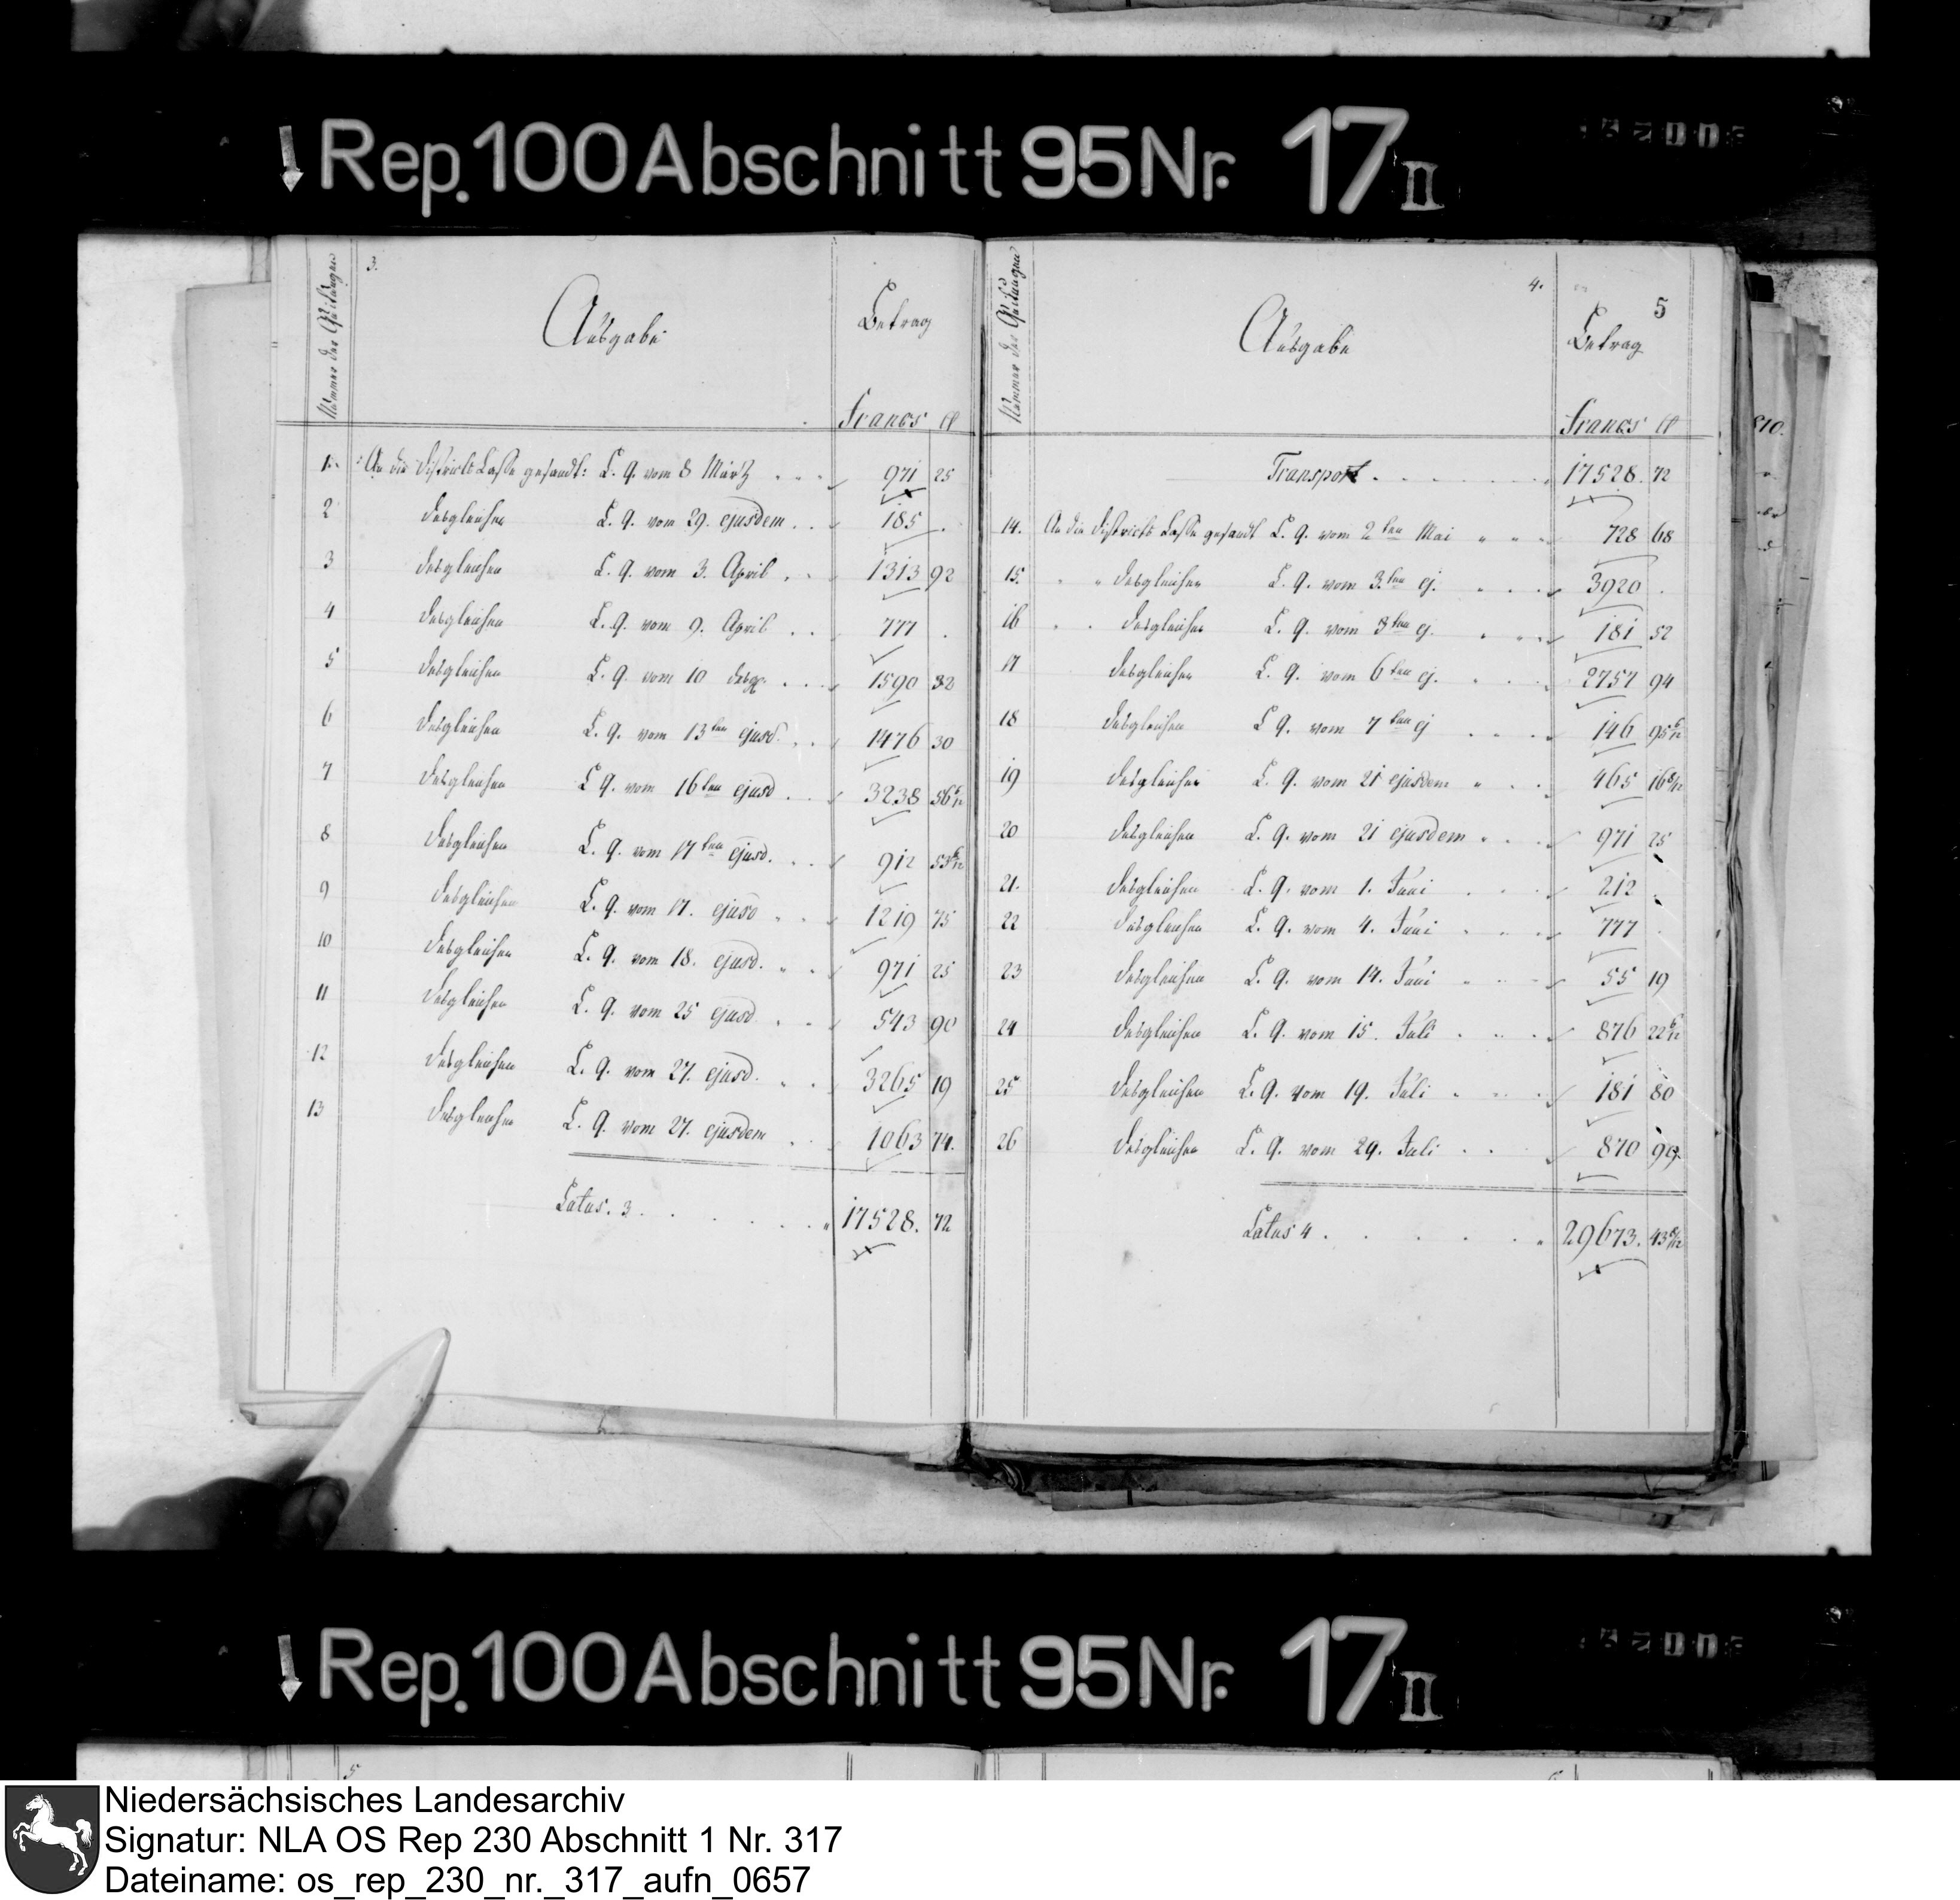 ↓ Rep. 100 Abschnitt 95 Nr. 17 II
3.
Nummer der Quitungen
Ausgabe
Betrag
Francs Ct
1. An die Districts Casse gesandt: L. q. vom 8 März . . . 971 25
2 desgleichen L. q. vom 29. ejusdem . . 185 .
3 desgleichen L. q. vom 3. April . . 1313 92
4 desgleichen L. q. vom 9. April . . 777 .
5 desgleichen L. q. vom 10 desgl. . . . 1590 32
6 desgleichen L. q. vom 13ten ejusd. . . 1476 30
7 desgleichen L q. vom 16ten ejusd . . 3238 56 6/12
8 desgleichen L. q. vom 17ten ejusd. . . 912 53 6/12
9 desgleichen L. q. vom 17. ejusd . . 1219 75
10 desgleichen L. q. vom 18. ejusd. . . 971 25
11 desgleichen L. q. vom 25 ejusd . . 543 90
12 desgleichen L. q. vom 27. ejusd. . . 3265 19
13 desgleichen L. q. vom 27. ejusdem . . 1063 74.
Latus. 3 . . . . . . 17528. 72
4.
5
Nummer der Quitungen
Ausgabe
Betrag
Francs Ct
Transport . . . . . . 17528. 72
14. An die Districts Casse gesandt L. q. vom 2ten Mai " " . 728 68
15. " desgleichen L. q. vom 3.ten ej. . . . 3920 .
16 . . desgleichen L. q. vom 3ten ej. . . . 181 52
17 desgleichen L. q. vom 6ten ej. . . . 2757 94
18 desgleichen L q. vom 7ten ej . . . 146 95 6/12
19 desgleichen L. q. vom 21 ejusdem " . . 465 16 8/12
20 desgleichen L. q. vom 21 ejusdem . . . 971 25
21. desgleichen L. q. vom 1. Juni . . . 212 .
22 desgleichen L. q. vom 4. Juni . . . 777 .
23 desgleichen L. q. vom 14. Juni . . . 55 19
24 desgleichen L. q. vom 15. Juli . . . 876 22 6/12
25 desgleichen L. q. vom 19. Juli . . . 181 80
26 desgleichen L. q. vom 29. Juli . . . 870 99.
Latus 4 . . . . . " 29673. 43 8/12
810.
↓ Rep. 100 Abschnitt 95 Nr. 17 II
5
Niedersächsisches Landesarchiv
Signatur: NLA OS Rep 230 Abschnitt 1 Nr. 317
Dateiname: os_rep_230_nr._317_aufn_0657